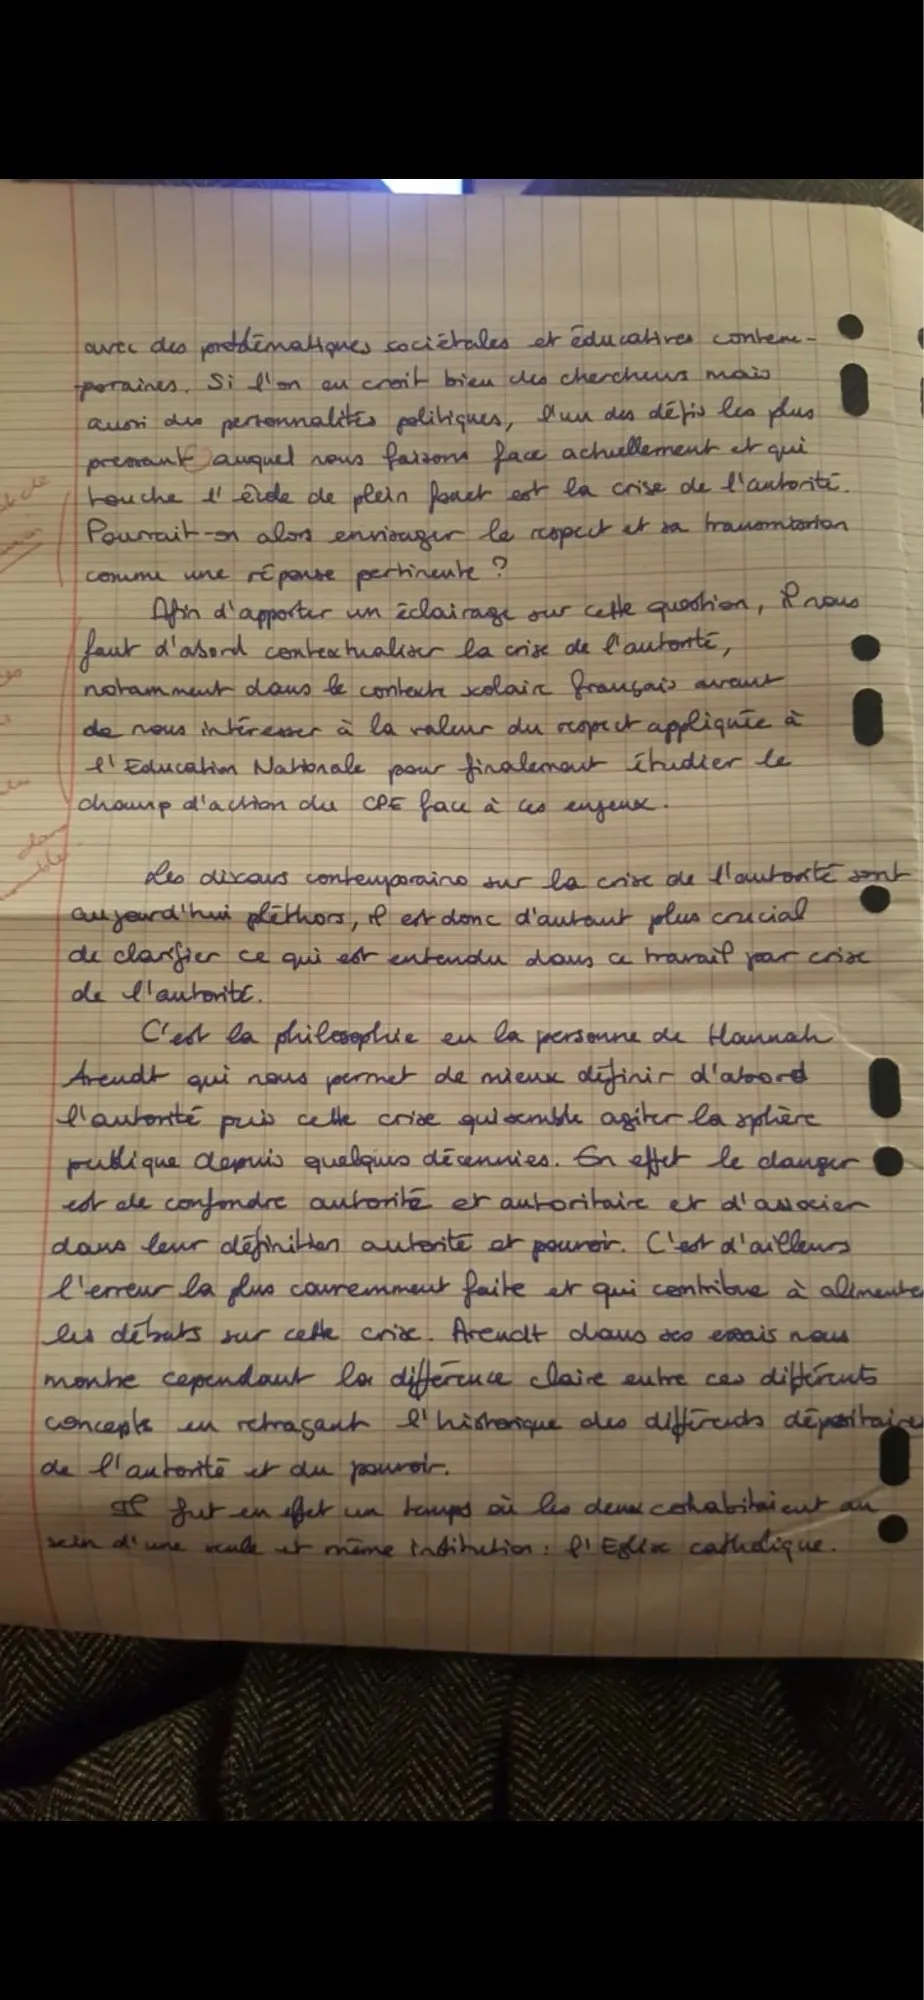 avec des problématiques sociétales et éducatives contem-
poraines. Si l'on en croit bien des chercheurs mais
aussi des personnalités politiques, l'un des défis les plus
pressant auquel nous faisons face actuellement et qui
touche l'école de plein fouet est la crise de l'autorité.
Pourrait-on alors envisager le respect et sa transmission
comme une réponse pertinente ?
Afin d'apporter un éclairage sur cette question, il nous
faut d'abord contextualiser la crise de l'autorité,
notamment dans le contexte scolaire français avant
de nous intéresser à la valeur du respect appliquée à
l'Education Nationale pour finalement étudier le
champ d'action du CPE face à ces enjeux.
Les discours contemporains sur la crise de l'autorité sont
aujourd'hui pléthors, il est donc d'autant plus crucial
de clarifier ce qui est entendu dans ce travail par crise
de l'autorité.
C'est la philosophie en la personne de Hannah
Arendt qui nous permet de mieux définir d'abord
l'autorité puis cette crise qui semble agiter la sphère
publique depuis quelques décennies. En effet le danger
est de confondre autorité et autoritaire et d'associer
dans leur définition autorité et pouvoir. C'est d'ailleurs
l'erreur la plus couremment faite et qui contribue à alimenter
les débats sur cette crise. Arendt dans ses essais nous
montre cependant la différence claire entre ces différents
concepts en retraçant l'historique des différents dépositaires
de l'autorité et du pouvoir.
Il fut en effet un temps où les deux cohabitaient au
sein d'une seule et même institution : l'Eglise catholique.